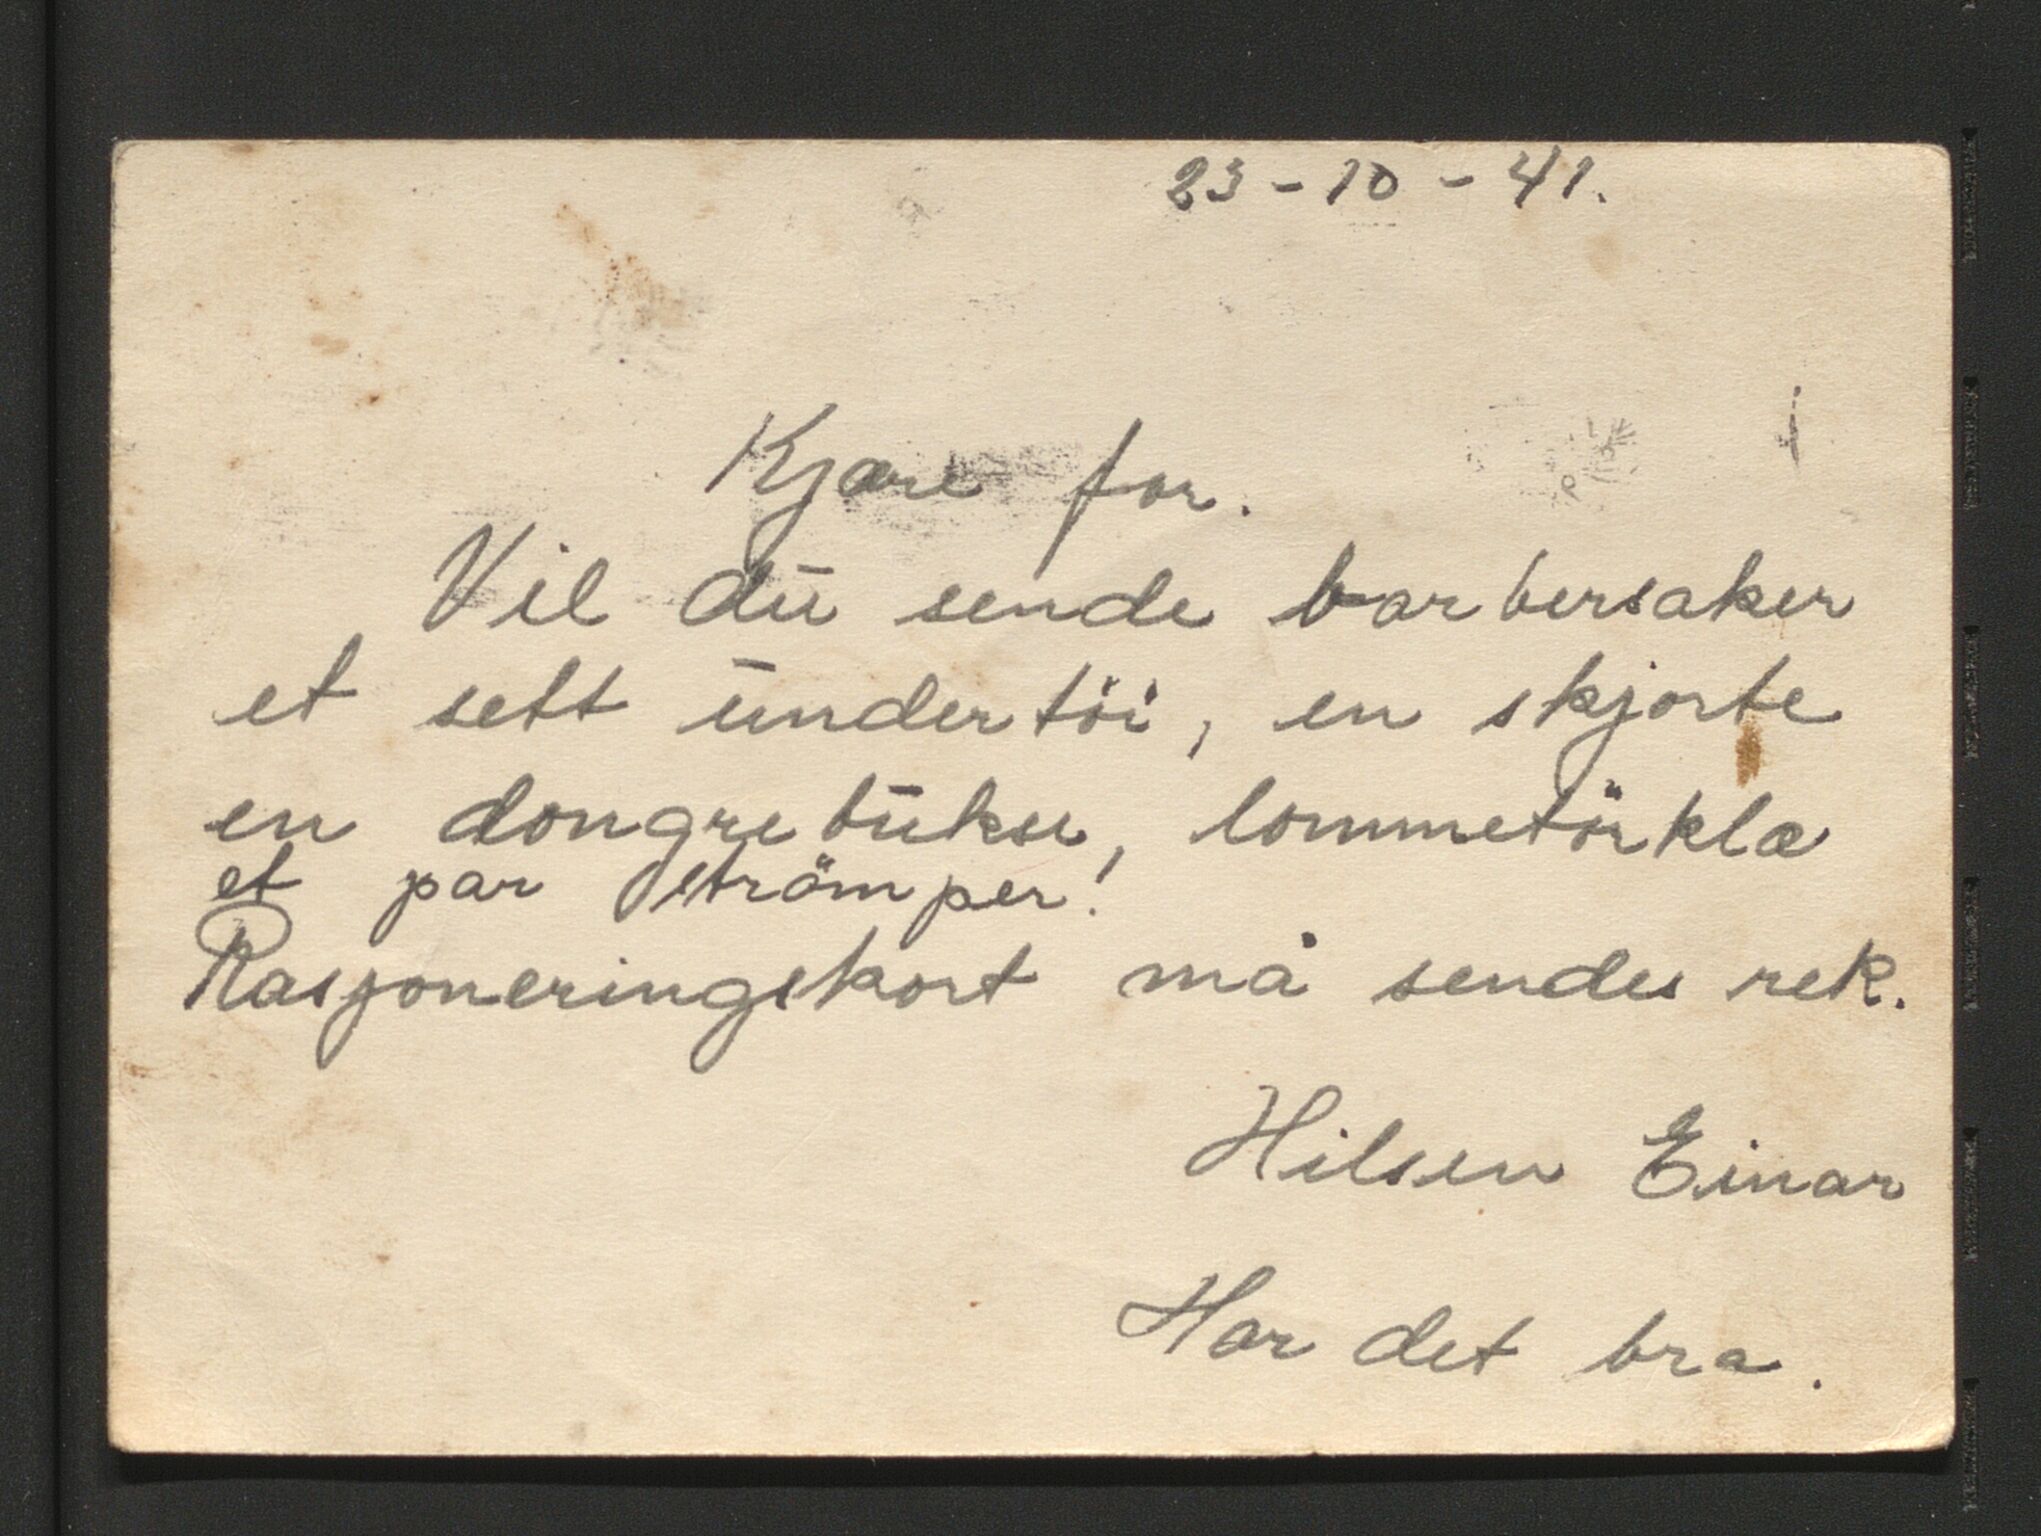 23-10-41.
Kjære far.
Vil dū sende barbersaker
et sett ūndertöi, en skjorte
en dongrebūkse, lommetörklæ
et par strömper!
Rasjoneringskort må sendes rek.
Hilsen Einar
Har det bra.